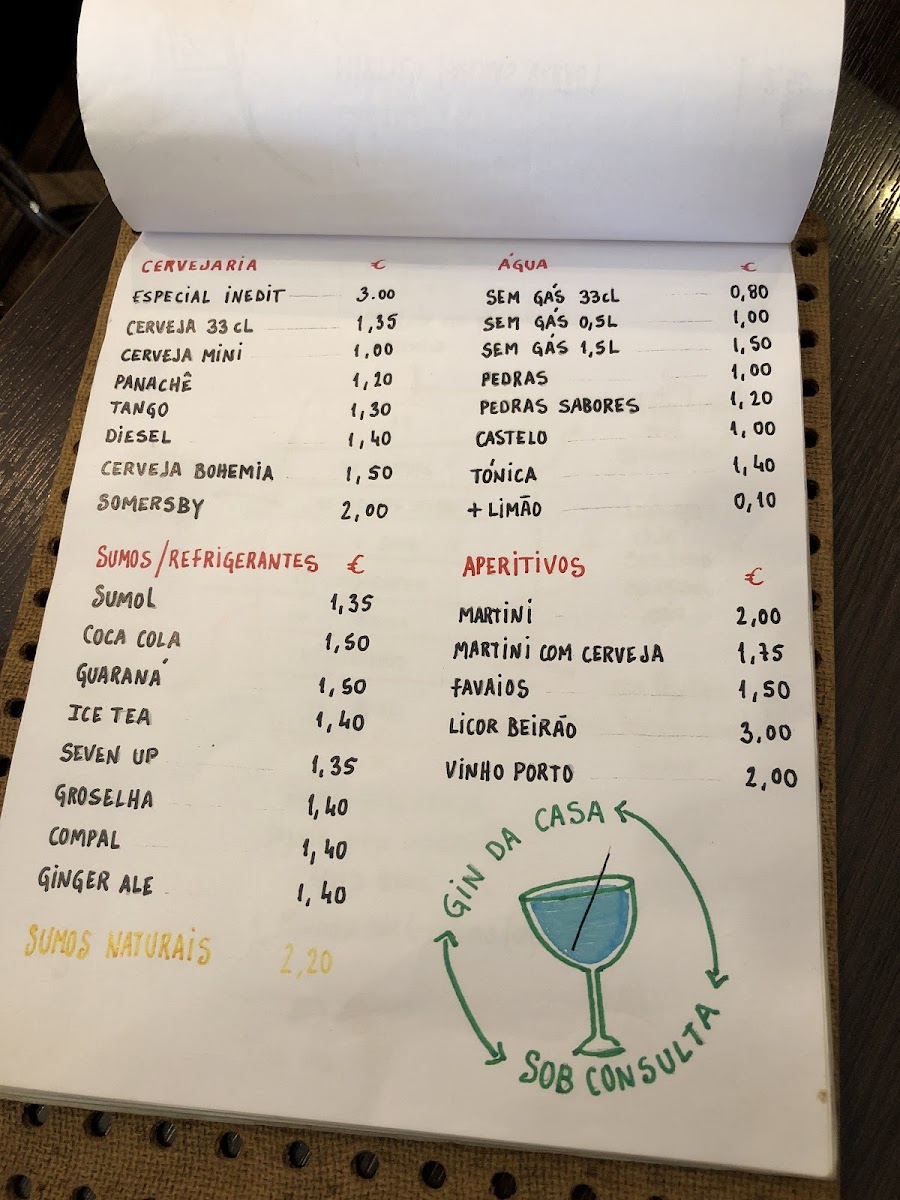 CERVEJARIA €
ESPECIAL INEDIT 3.00
CERVEJA 33 CL 1,35
CERVEJA MINI 1,00
PANACHÊ 1,20
TANGO 1,30
DIESEL 1,40
CERVEJA BOHEMIA 1,50
SOMERSBY 2,00
ÁGUA €
SEM GÁS 33CL 0,80
SEM GÁS 0,5L 1,00
SEM GÁS 1,5L 1,50
PEDRAS 1,00
PEDRAS SABORES 1,20
CASTELO 1,00
TÓNICA 1,40
+ LIMÃO 0,10
SUMOS/REFRIGERANTES €
SUMOL 1,35
COCA COLA 1,50
GUARANÁ 1,50
ICE TEA 1,40
SEVEN UP 1,35
GROSELHA 1,40
COMPAL 1,40
GINGER ALE 1,40
SUMOS NATURAIS 2,20
APERITIVOS €
MARTINI 2,00
MARTINI COM CERVEJA 1,75
FAVAIOS 1,50
LICOR BEIRÃO 3.00
VINHO PORTO 2,00
GIN DA CASA
SOB CONSULTA